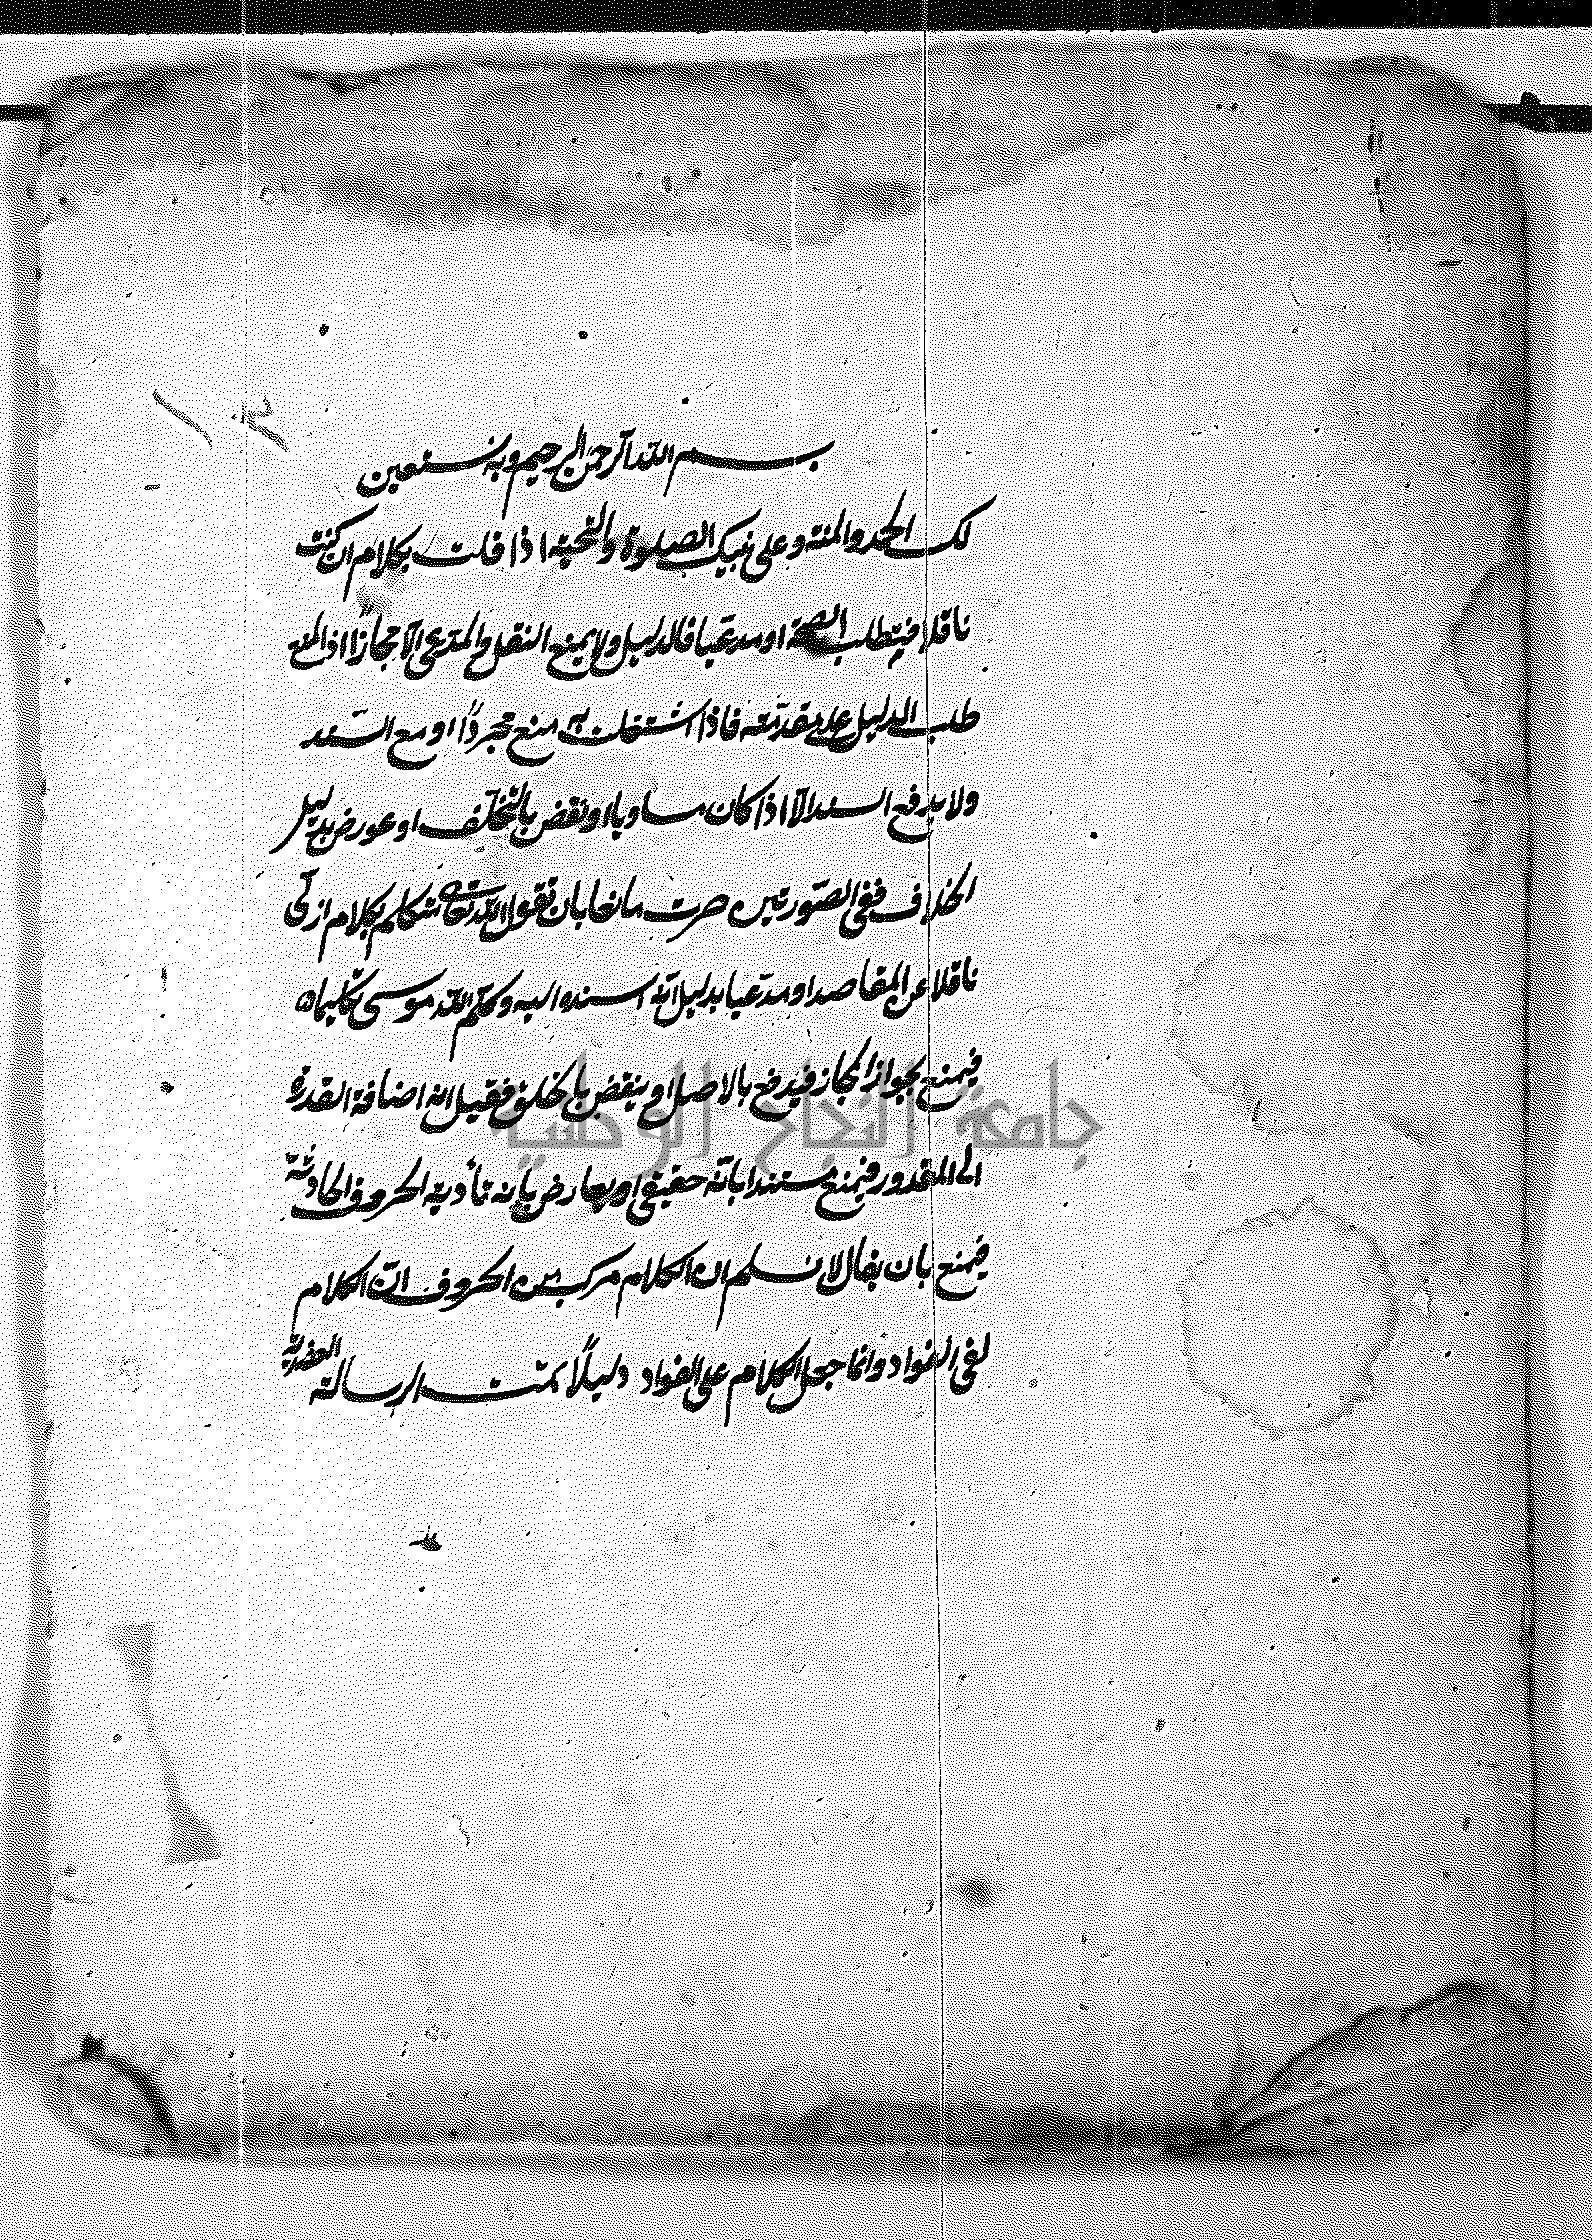 بسم الله الرحمن الرحيم وبه نستعين
لك الحمد والمنة وعلى نبيك الصلوة والتحية اذا قلت بكلام ان كنت
ناقلا فيطلب الصحة او مدعيا فالدليل ولا يمنع النقل والمدعى الا مجازا اذ المنع
طلب الدليل على مقدمته فاذا اشتغلت به منع مجردا او مع السند
ولا يدفع السند الا اذا كان مساويا او نقض بالتخلف او عورض بدليل
الخلاف ففى الصورتين صرت مانعا بان تقول الله تعالى متكلم بكلام ازلى
ناقلا عن المقاصد او مدعيا بدليل انه اسنده اليه وكلم الله موسى تكليما
فيمنع بجواز المجاز فيدفع بالاصل او ينقض بالخلق فقيل انه اضافة القدرة
الى المقدور فيمنع مستندا بانه حقيقى او يعارض بانه تأدية الحروف الحادثة
فيمنع بان يقال لا نسلم ان الكلام مركب من الحروف ان الكلام
لفى الفواد وانما جعل الكلام على الفواد دليلا تمت الرسالة العضدية
جامعة النجاح الوطنية